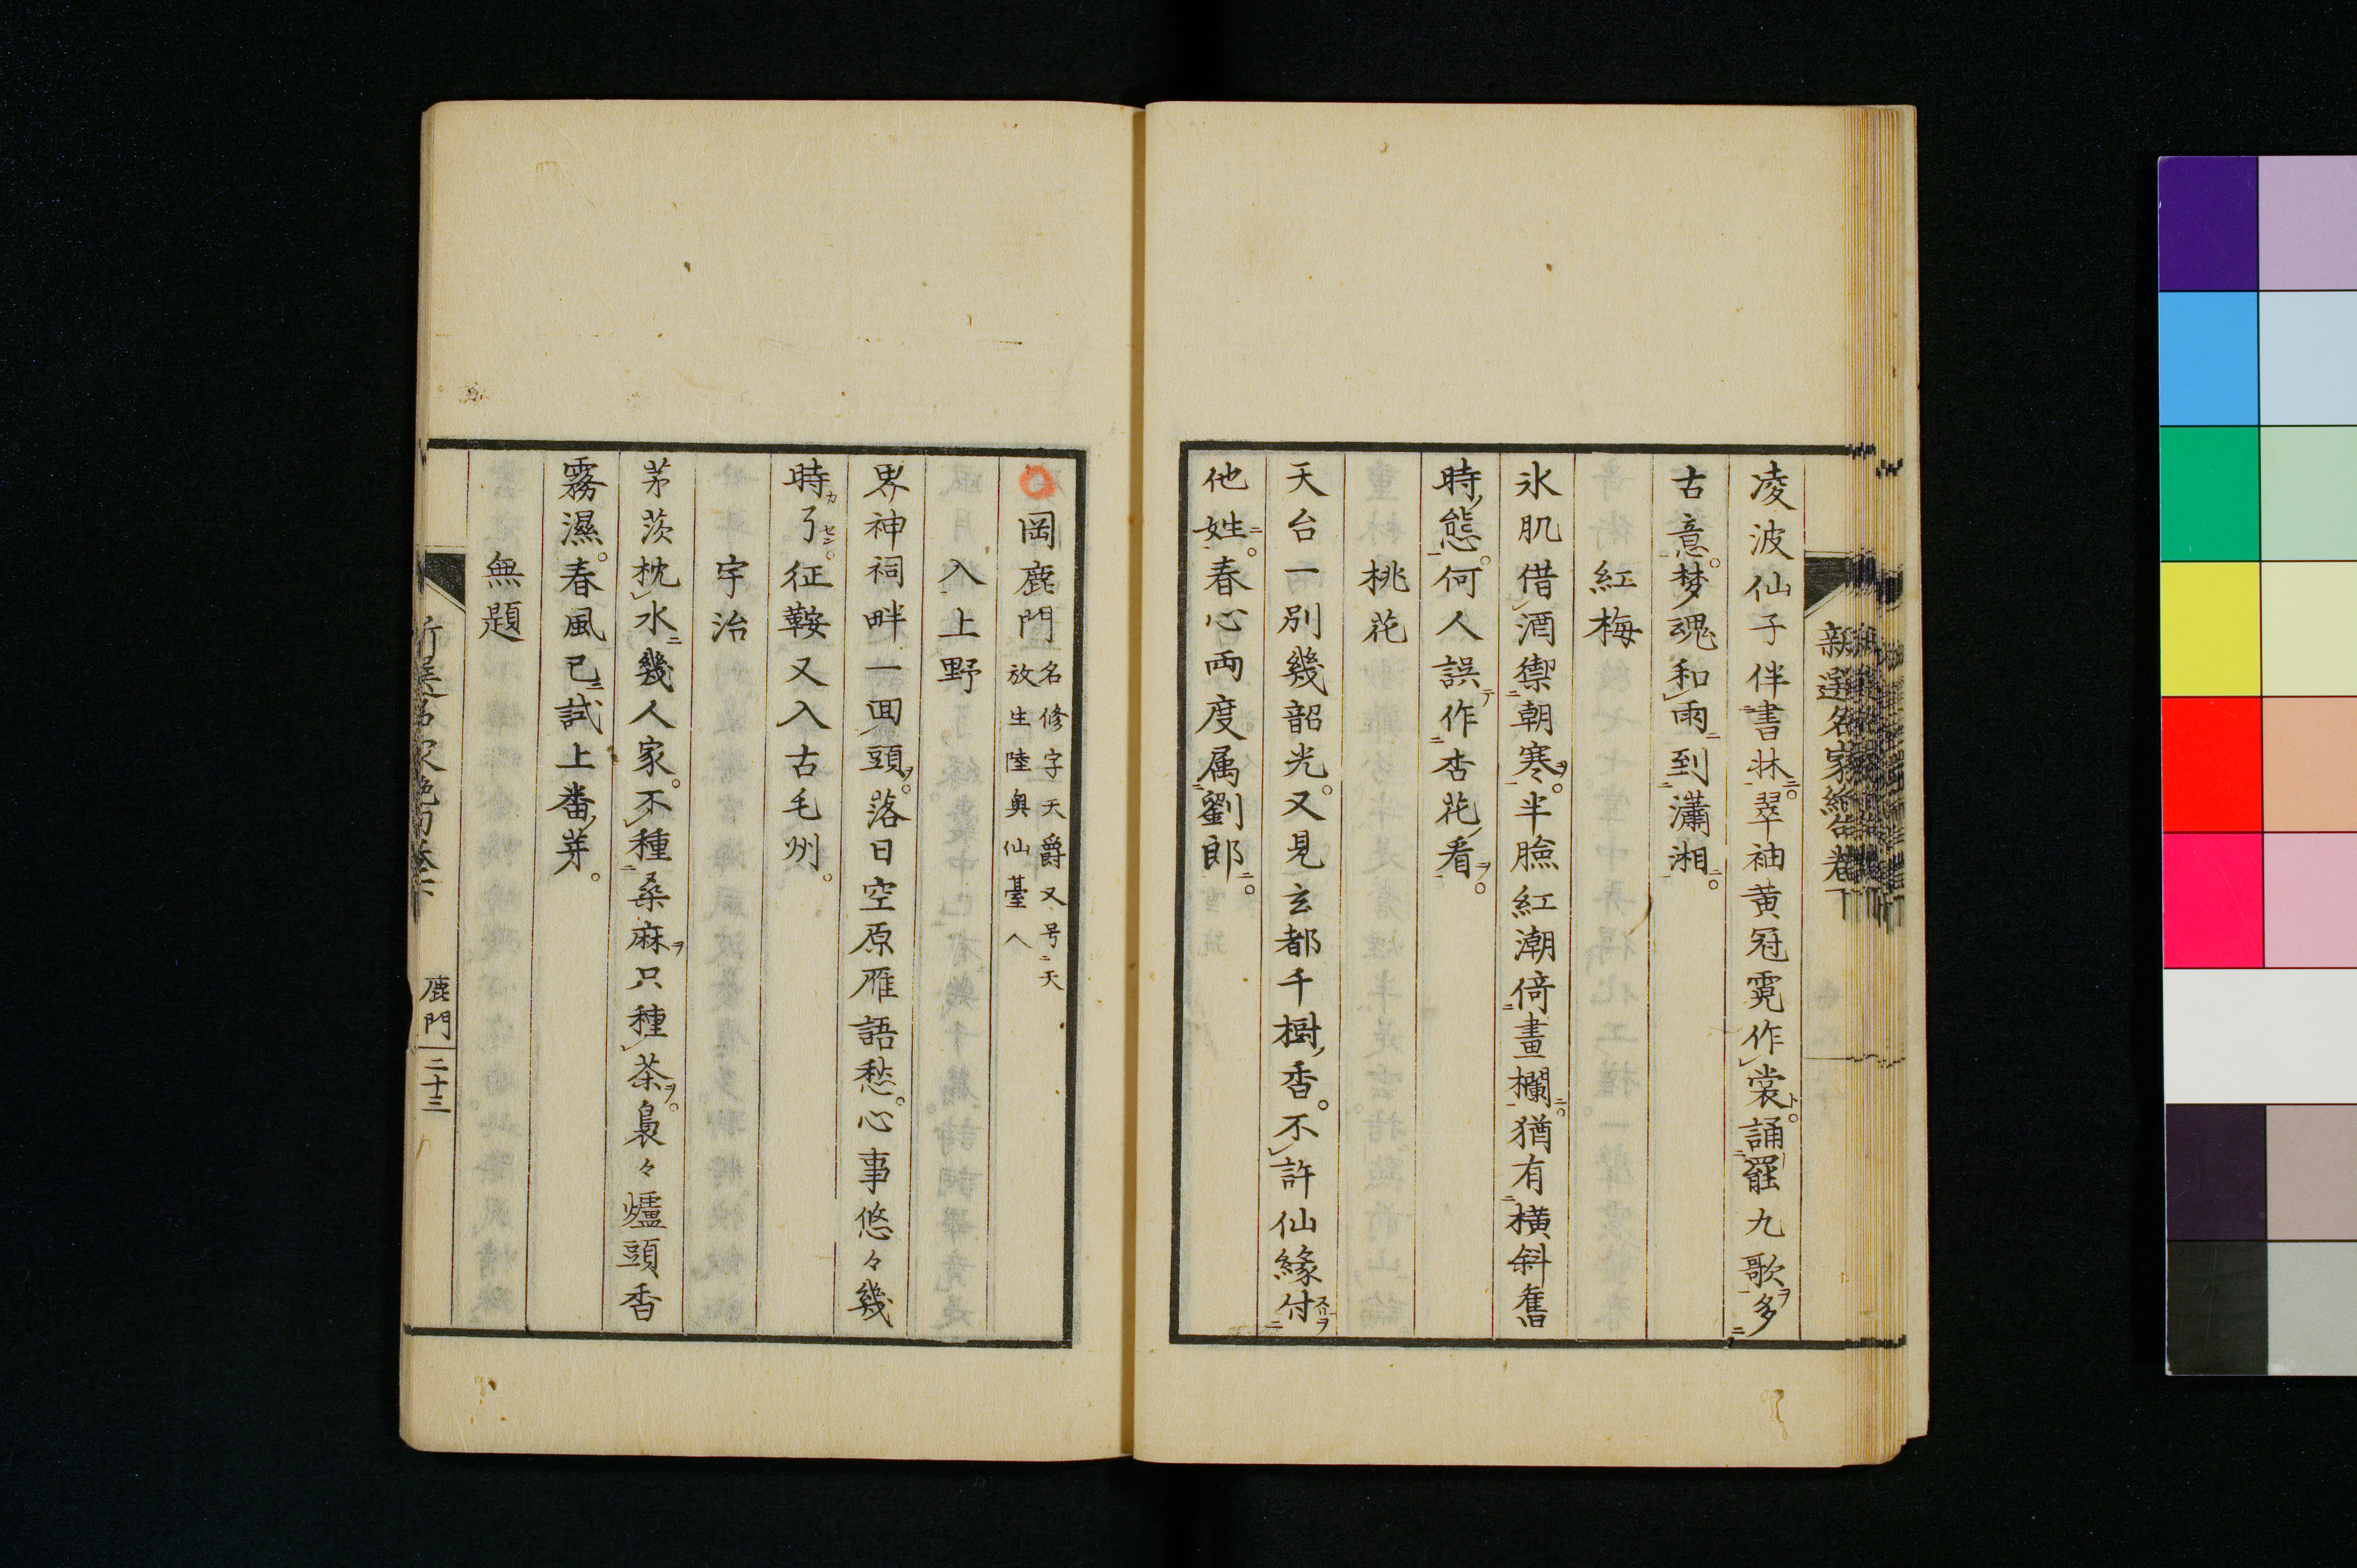 新選名家絶句巻下
凌波仙子伴書牀翠袖黄冠霓作裳誦罷九歌多
古意。梦魂和雨到瀟湘。
紅梅
氷肌借酒禦朝寒。半臉紅潮倚畫欄。猶有横斜舊
時態。何人誤作杏花看。
桃花
天台一別幾韶光。又見玄都千樹香。不許仙緣付
他姓。春心両度属劉郎。
岡鹿門 名修字天爵又号天
放生陸奥仙臺人
入上野
界神祠畔一回頭。落日空原雁語愁。心事悠々幾
時了。征鞍又入古毛州。
宇治
茅茨枕水幾人家。不種桑麻只種茶。裊々爐頭香
霧濕。春風已試上番芽。
無題
鹿門 二十三